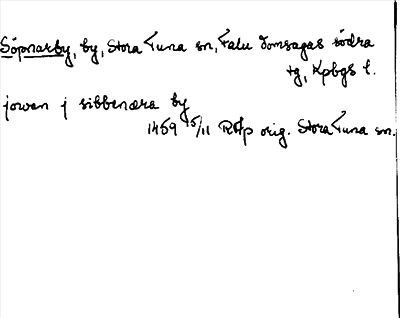 Söpnarby, by, Stora Tuna sn, Falu domsagas södra
tg, Kpbgs l.
jowan j sibbenæra by
1459 15/11 RAp orig. Stora Tuna sn.